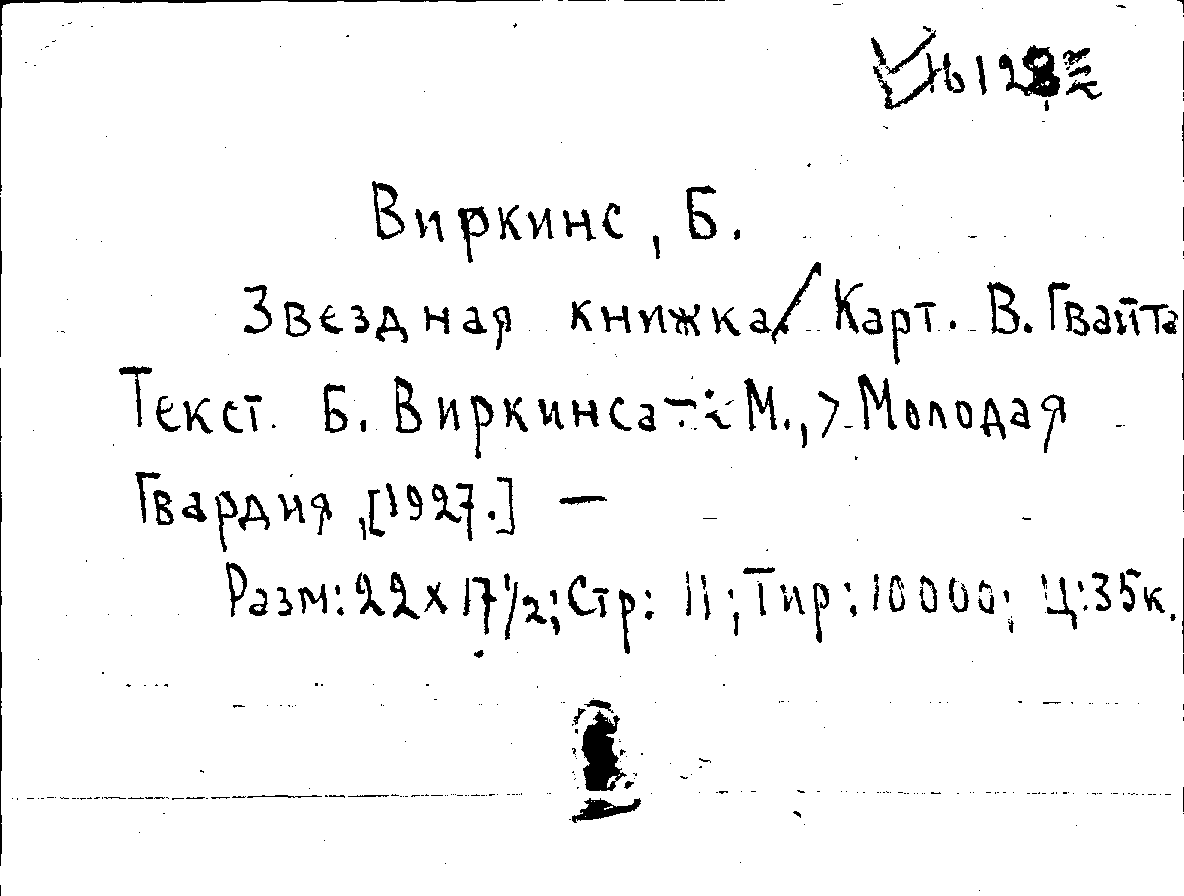 128
Виркинс, Б.
Звездная книжка / Карт. В. Гвайта
Текст Б. Виркинса - М., Молодая
Гвардия, [1927.] —
Разм: 22 x 17 1/2; Стр: 11; Тир: 10000; Ц: 35 к.